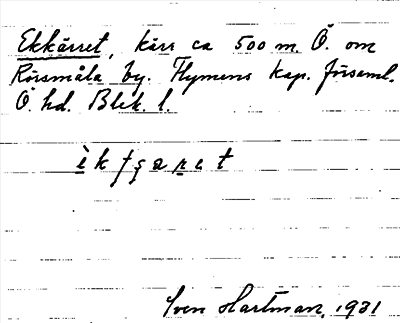 Ekkärret, kärr ca 500 m. Ö. om
Rörsmåla by. Flymens kap. församl.
Ö. hd. Blek. l.
Sven Hartman, 1931